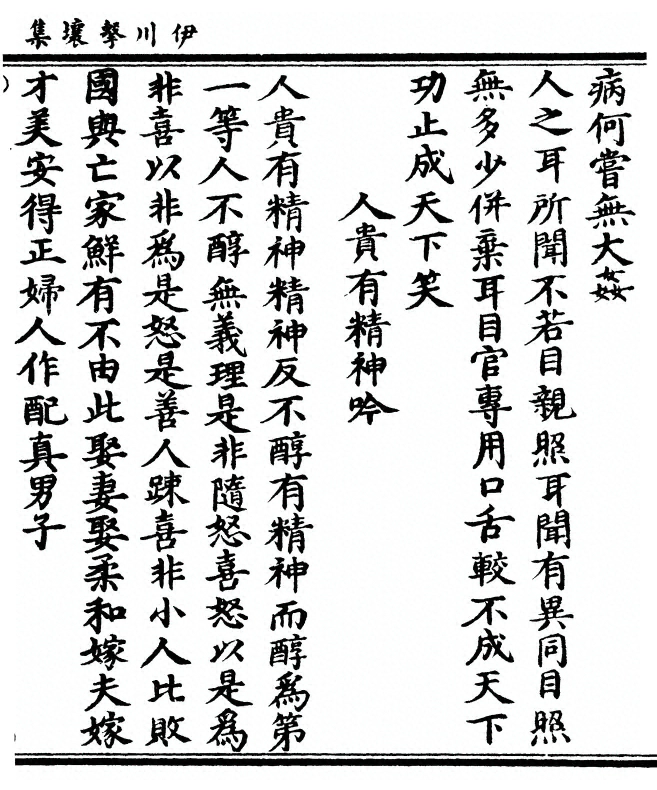 伊川擊壤集
病何嘗無大姦
人之耳所聞不若目親照耳聞有異同目照
無多少併棄耳目官專用口舌較不成天下
功止成天下笑
人貴有精神吟
人貴有精神精神反不醇有精神而醇爲第
一等人不醇無義理是非隨怒喜怒以是爲
非喜以非爲是怒是善人踈喜非小人比敗
國與亡家鮮有不由此娶妻娶柔和嫁夫嫁
才美安得正婦人作配真男子